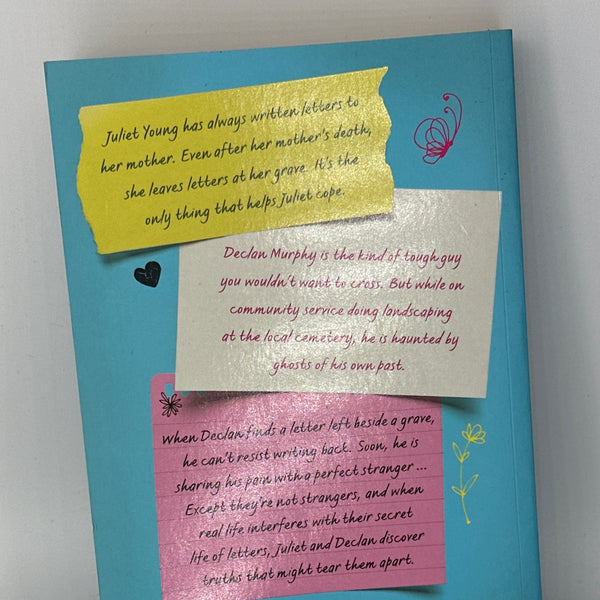 Juliet Young has always written letters to
her mother. Even after her mother's death,
she leaves letters at her grave. It's the
only thing that helps Juliet cope.
Declan Murphy is the kind of tough guy
you wouldn't want to cross. But while on
community service doing landscaping
at the local cemetery, he is haunted by
ghosts of his own past.
When Declan finds a letter left beside a grave,
he can't resist writing back. Soon, he is
sharing his pain with a perfect stranger ...
Except they're not strangers, and when
real life interferes with their secret
life of letters, Juliet and Declan discover
truths that might tear them apart.